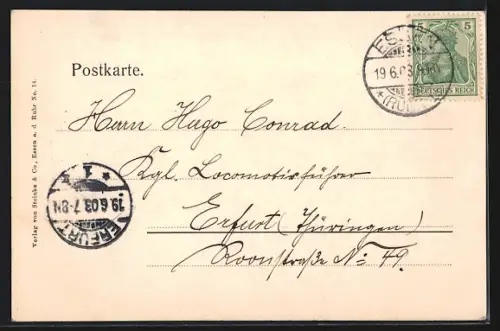 Postkarte.
5 5
DEUTSCHES REICH
ESSEN
19.6.03
(RUHR)
Herrn Hugo Conrad.
Kgl. Locomotivführer
Erfurt (Thüringen)
Roonstraße No 49.
ERFURT
19.6.03. 7-8N
* 1 *
Verlag von Steinke & Co., Essen a. d. Ruhr No. 14.